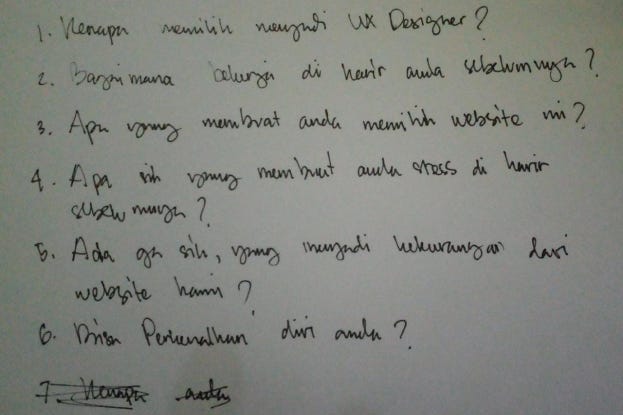 1. Kenapa memilih menjadi UX Designer?
2. Bagaimana bekerja di karir anda sebelumnya?
3. Apa yang membuat anda memilih website ini?
4. Apa sih yang membuat anda stress di karir
sebelumnya?
5. Ada ga sih, yang menjadi kekurangan dari
website kami?
6. Bisa Perkenalkan diri anda?
7. Kenapa anda